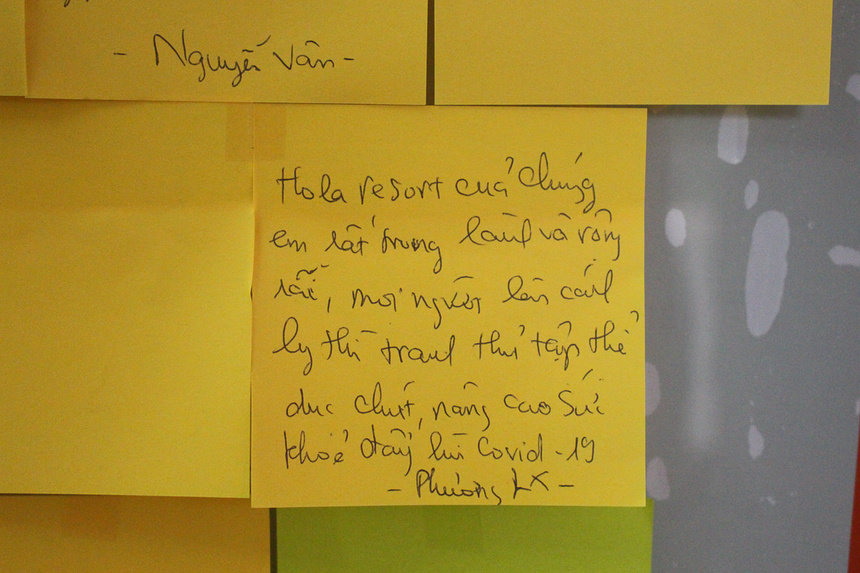 - Nguyễn Vân -
Hola resort của chúng
em rất trong lành và rộng
rãi, mọi người lên cách
ly thì tranh thủ tập thể
dục chút, nâng cao sức
khoẻ đẩy lùi Covid-19
- Phương LX -